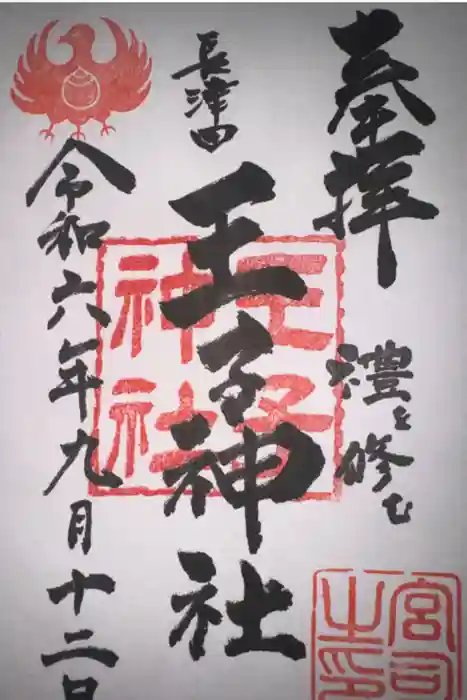 奉拝
澧を修む
長津田
王子神社
令和六年九月十二日
王子
神社
宮司
之印